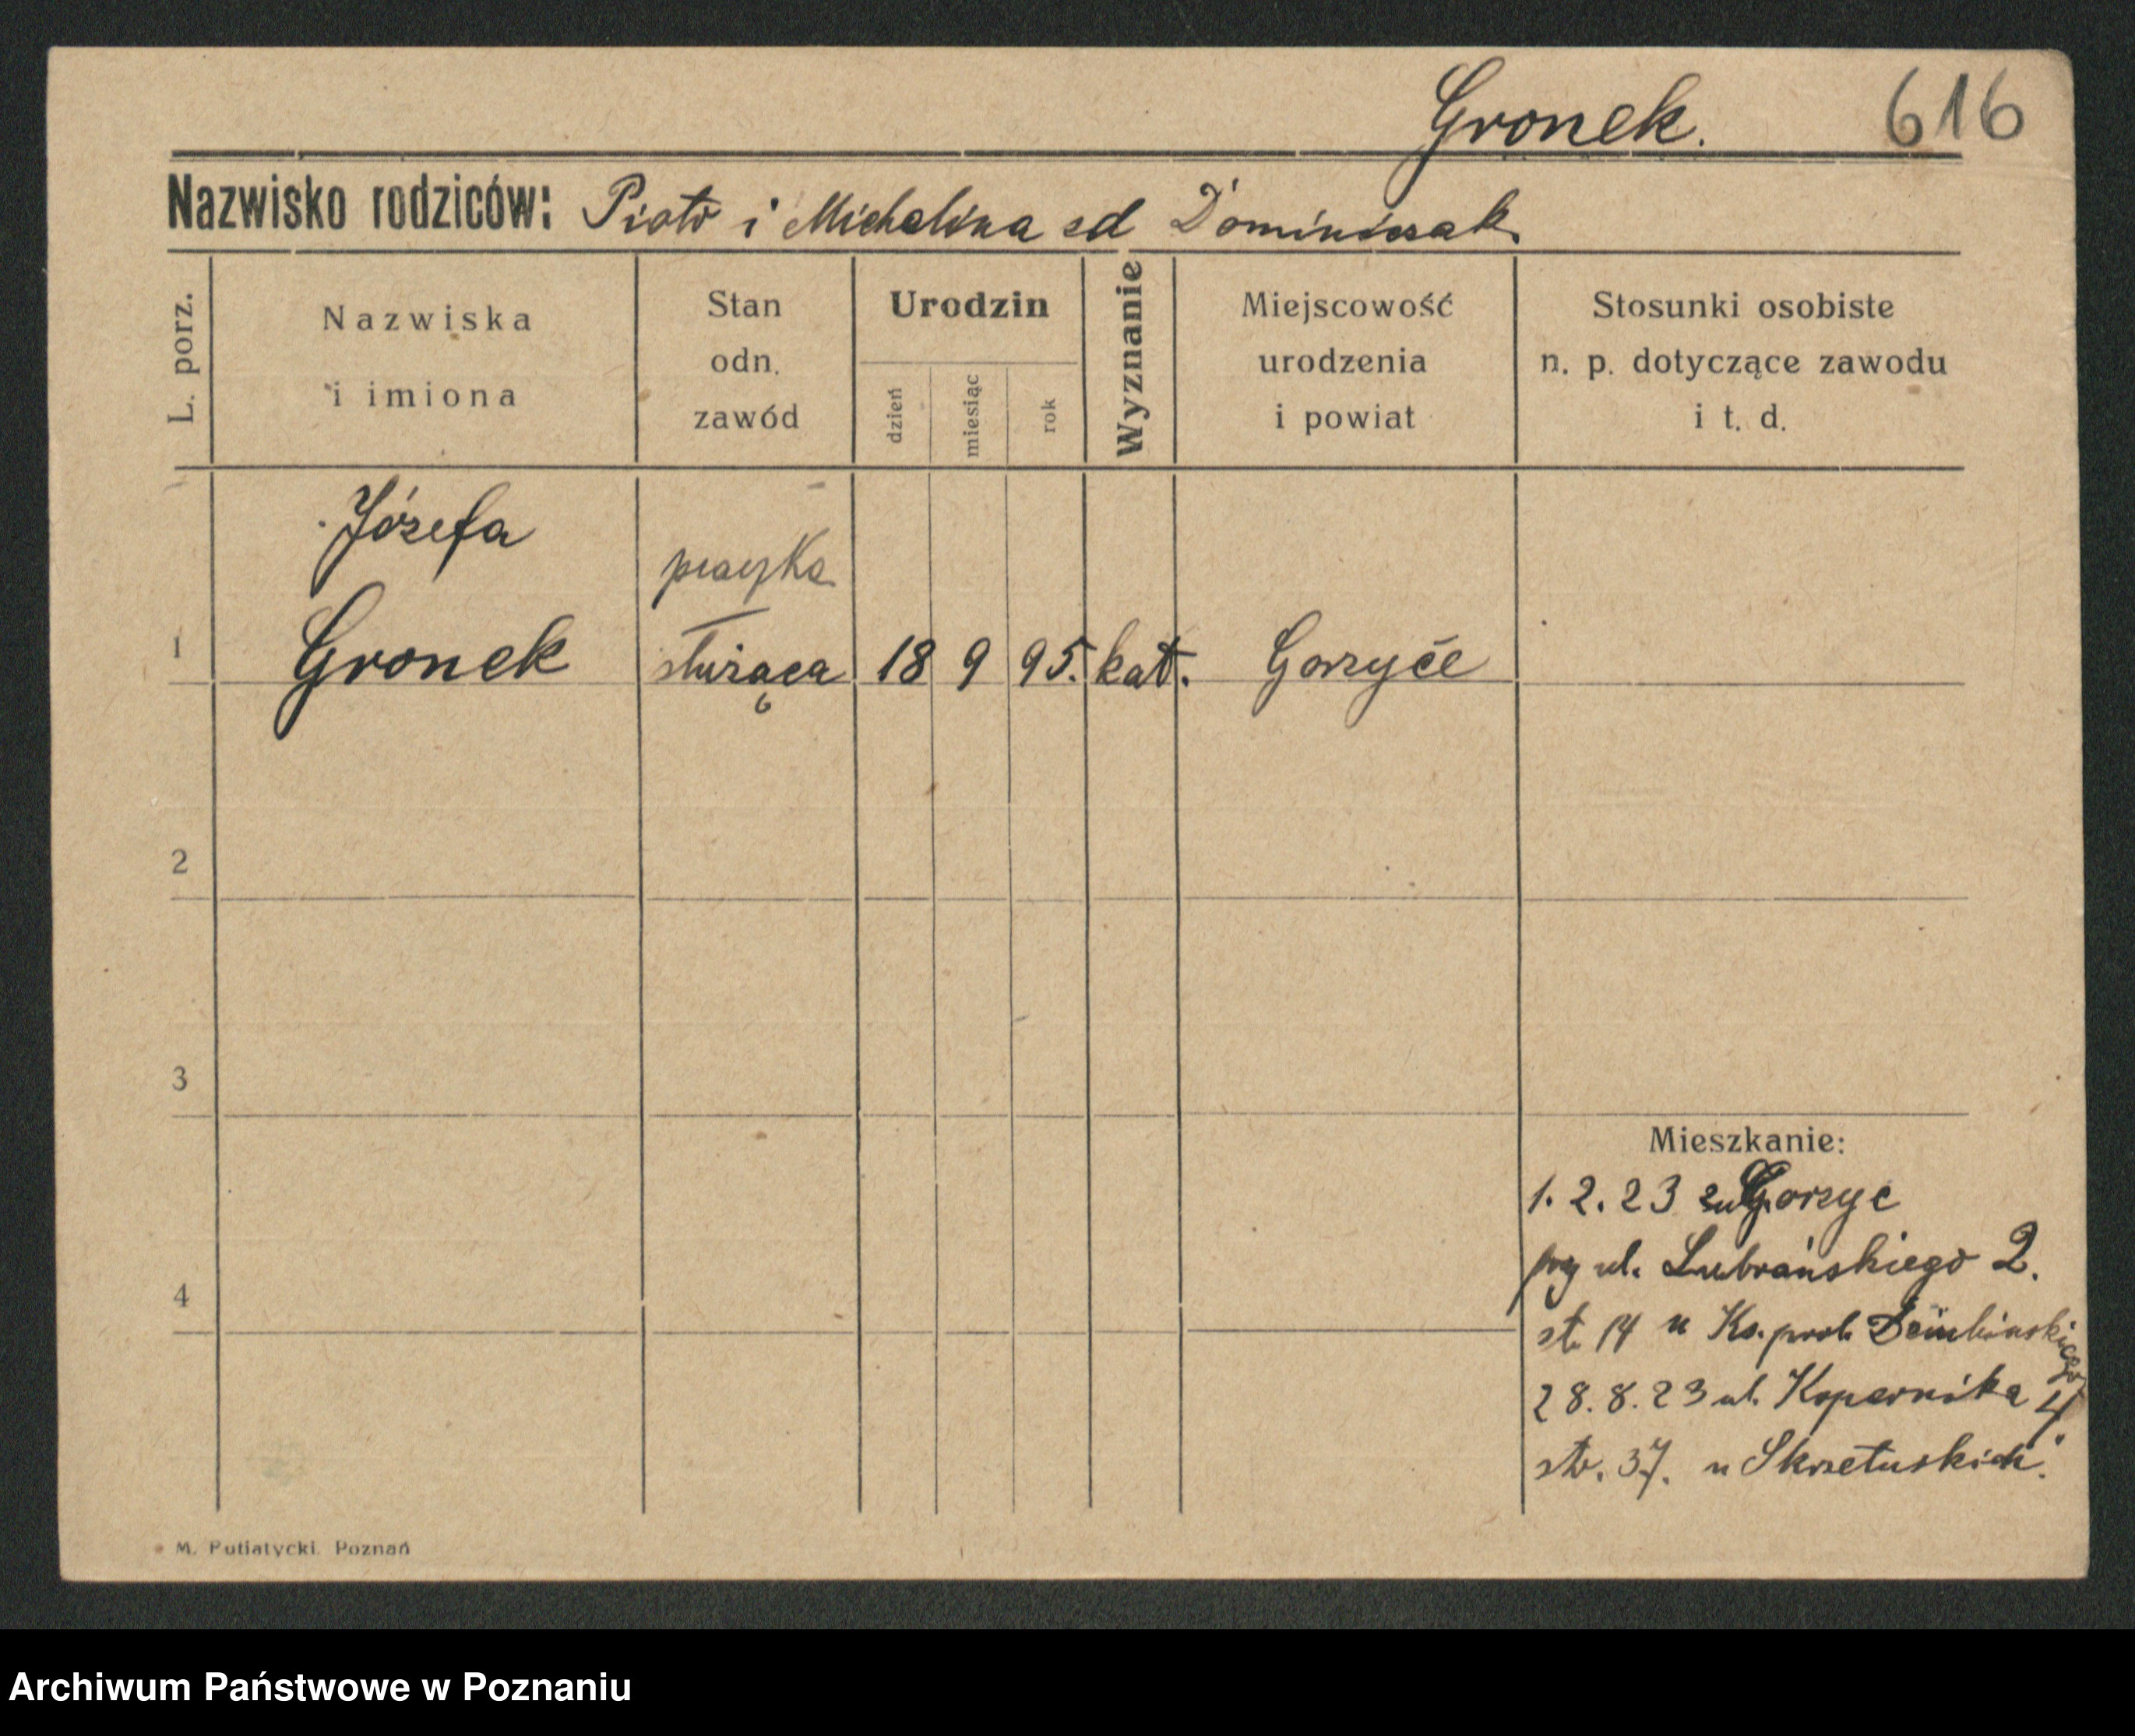 Gronek. 616
Nazwisko rodziców: Piotr i Michalina zd Dominiczak.
L. porz.
Nazwiska
i imiona
Stan
odn.
zawód
Urodzin
dzień
miesiąc
rok
Wyznanie
Miejscowość
urodzenia
i powiat
Stosunki osobiste
n. p. dotyczące zawodu
i t. d.
Józefa
1 Gronek służąca 18 9 95. kat. Gorzyce
2
3
Mieszkanie:
1. 2. 23 Gorzyc
przy ul. Lubrańskiego 2.
4
st. 14 u Ks. prob.
28. 8. 23 ul. Kopernika 4.
str. 37. u Skrzetuskich.
M. Putiatycki. Poznań
Archiwum Państwowe w Poznaniu